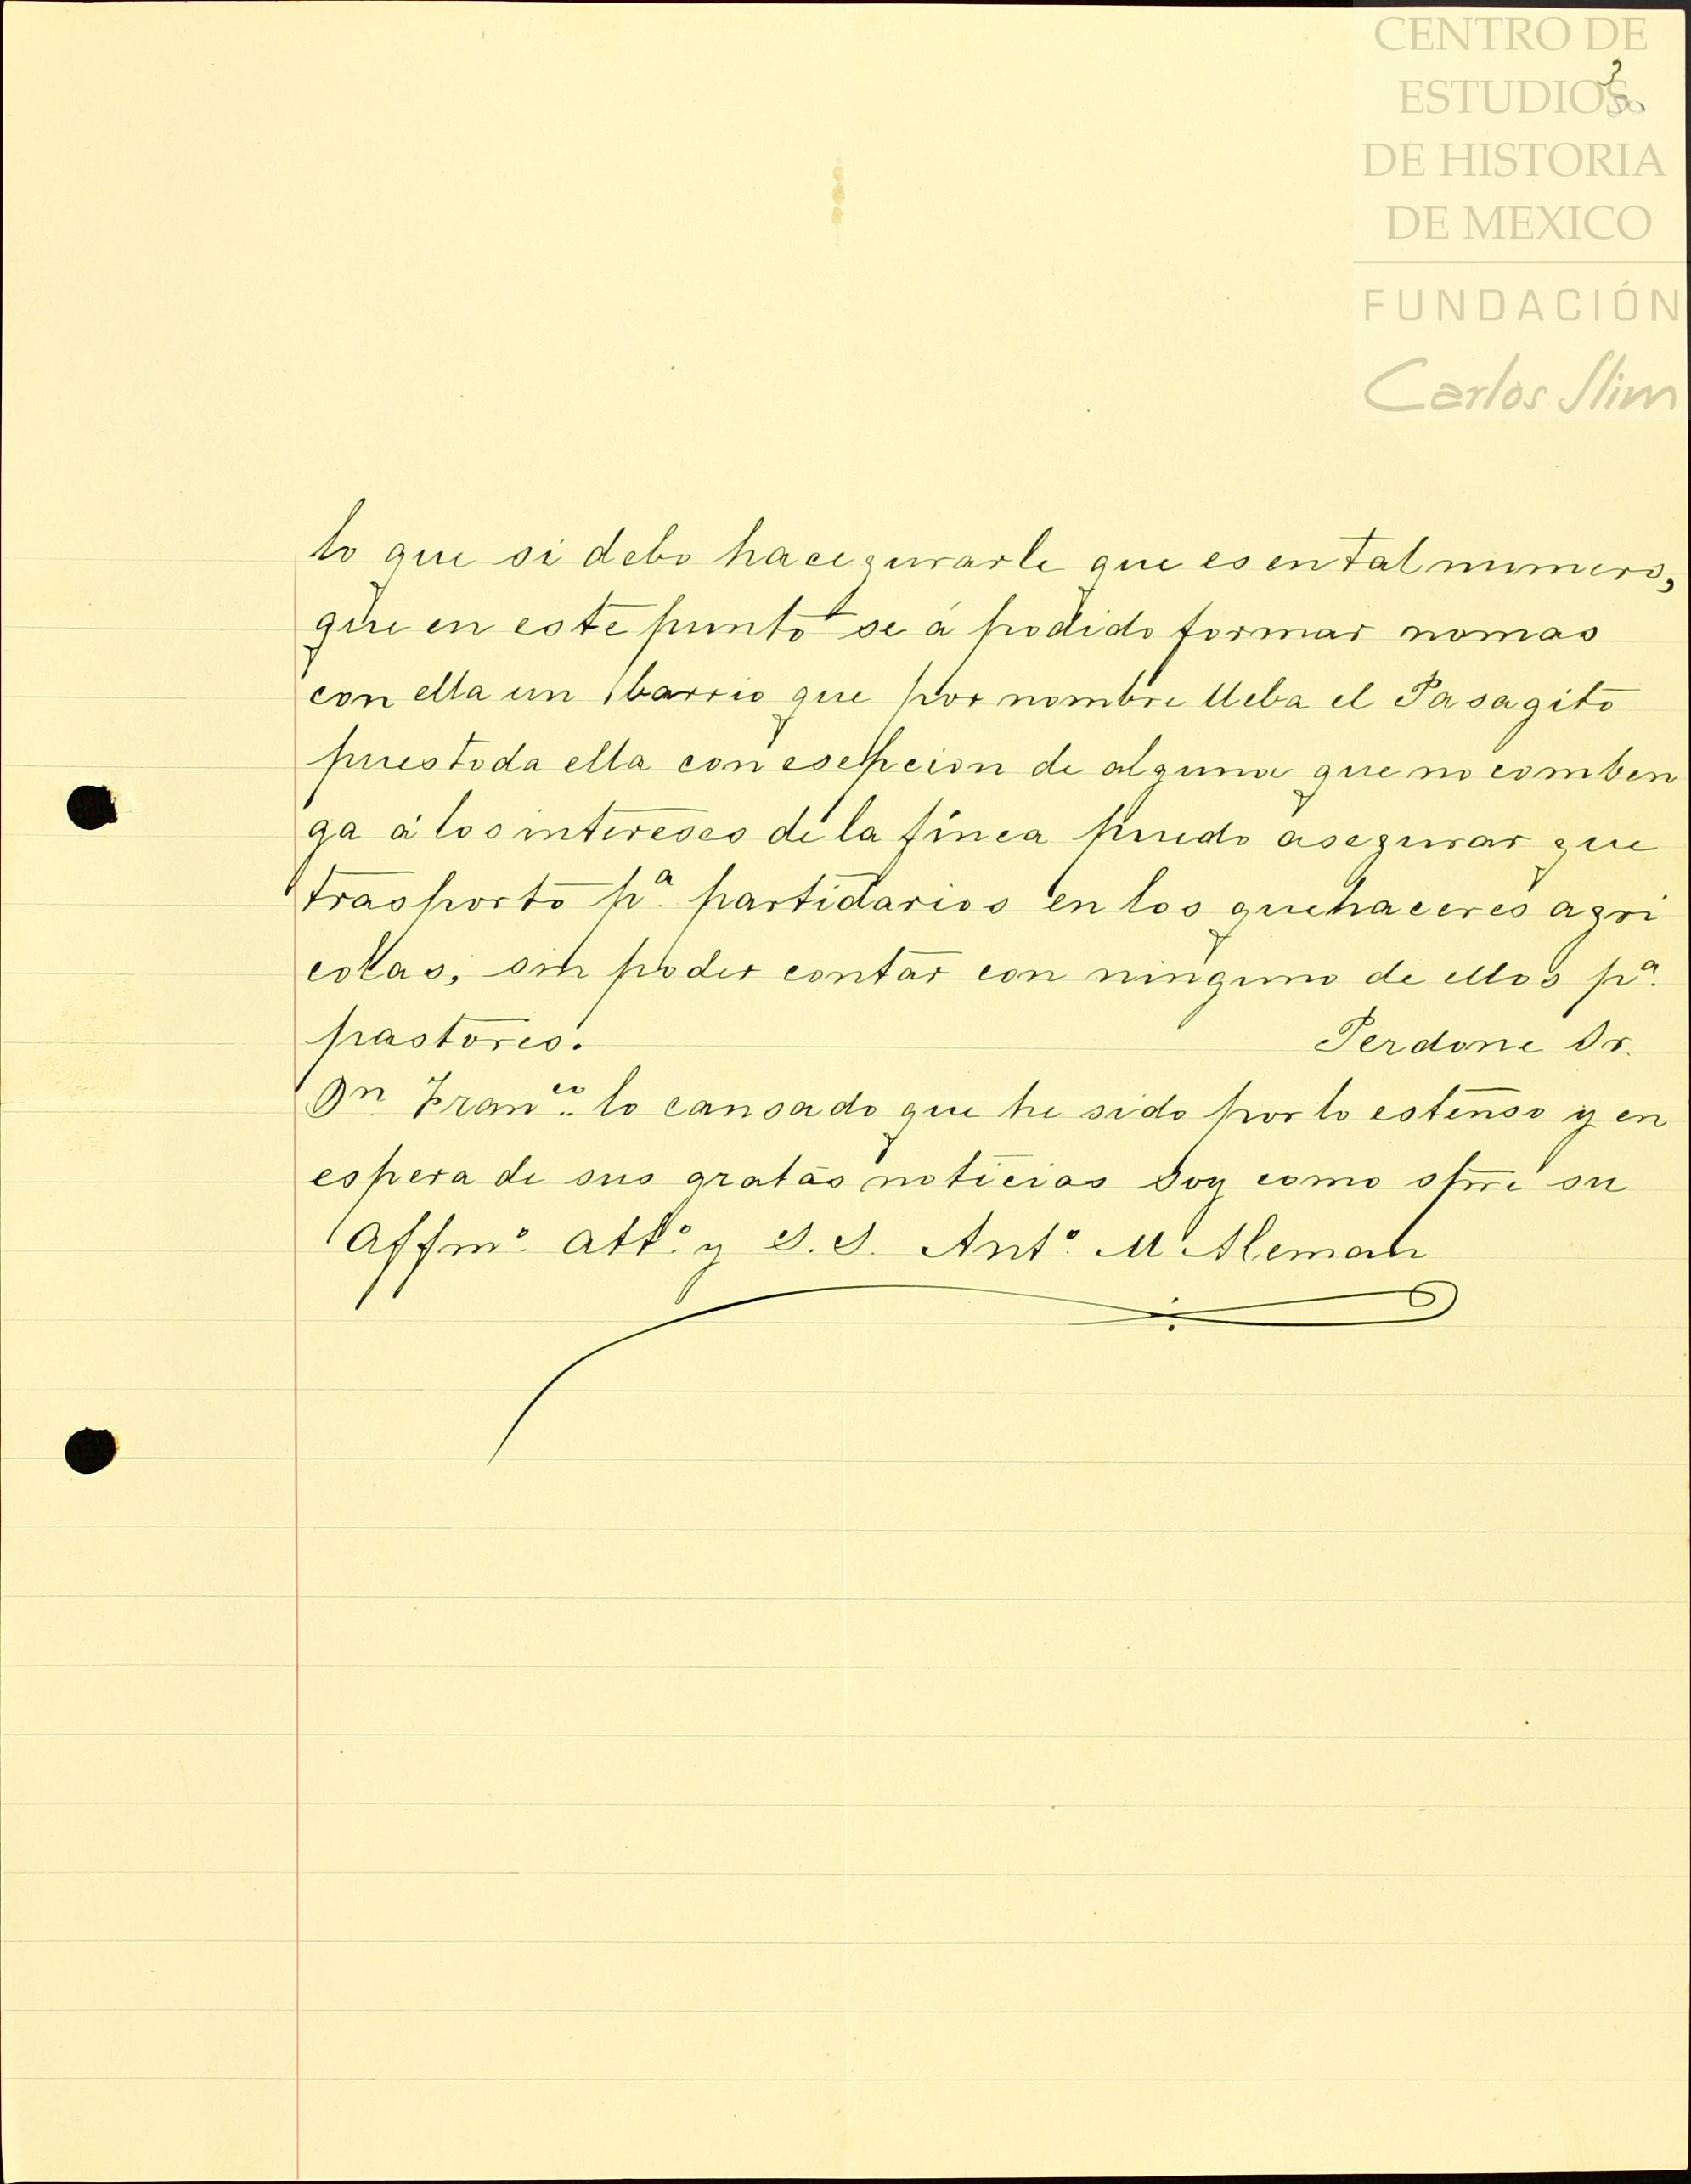 CENTRO DE
ESTUDIOS
DE HISTORIA
DE MEXICO
FUNDACIÓN
Carlos Slim
3
lo que si debo hacegurarle que es en tal numero,
que en este punto se á podido formar nomas
con ella un barrio que por nombre lleba el Pasagito
pues toda ella con esepcion de alguna que no comben
ga á los intereses de la finca puedo asegurar que
trasporto pª. partidarios en los quehaceres agri
colas, sin poder contar con ninguno de ellos pª.
pastores. Perdone Sr.
Dn. Franco. lo cansado que he sido por lo estenso y en
espera de sus gratas noticias soy como spre su
Affmº. attº. y S.S. Antº. M Aleman